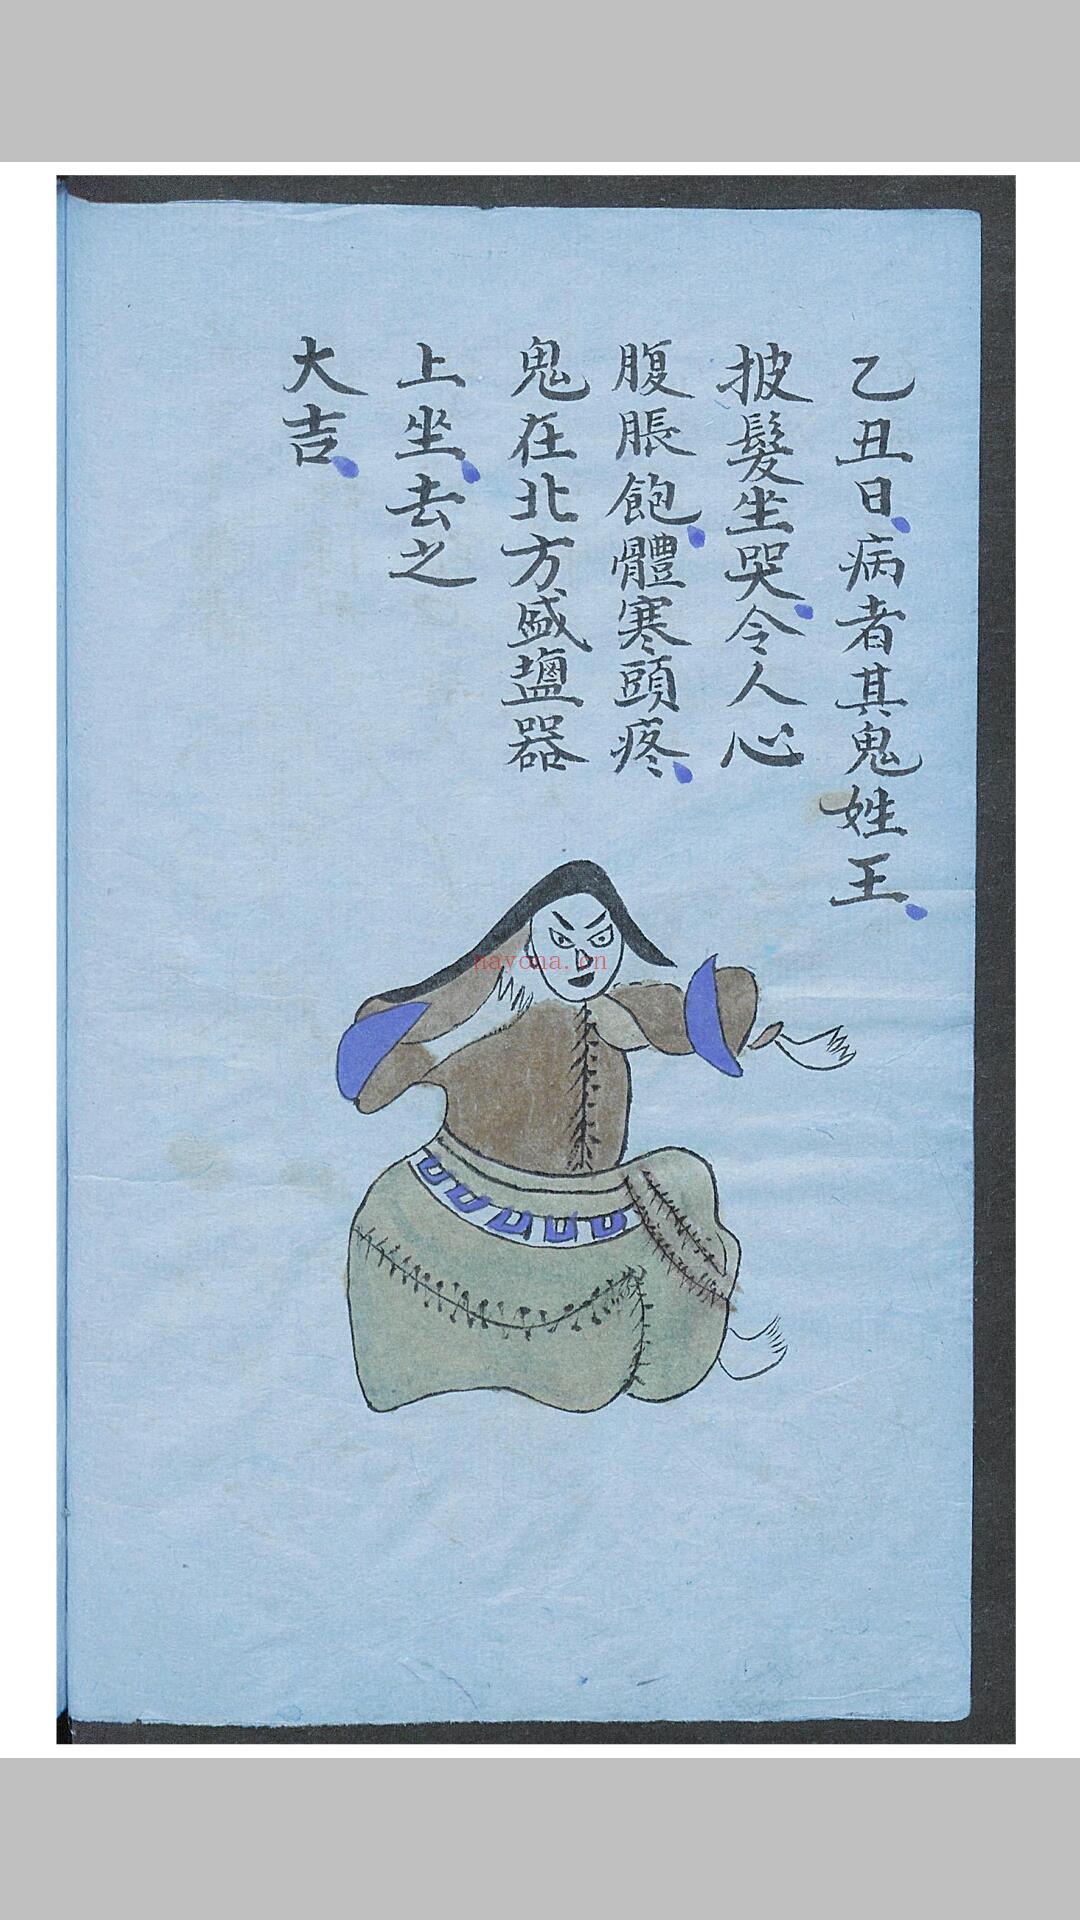 乙丑日病者其鬼姓王
披髮坐哭令人心
腹脹飽體寒頭疼
鬼在北方盛鹽器
上坐去之
大吉
nayona.cn